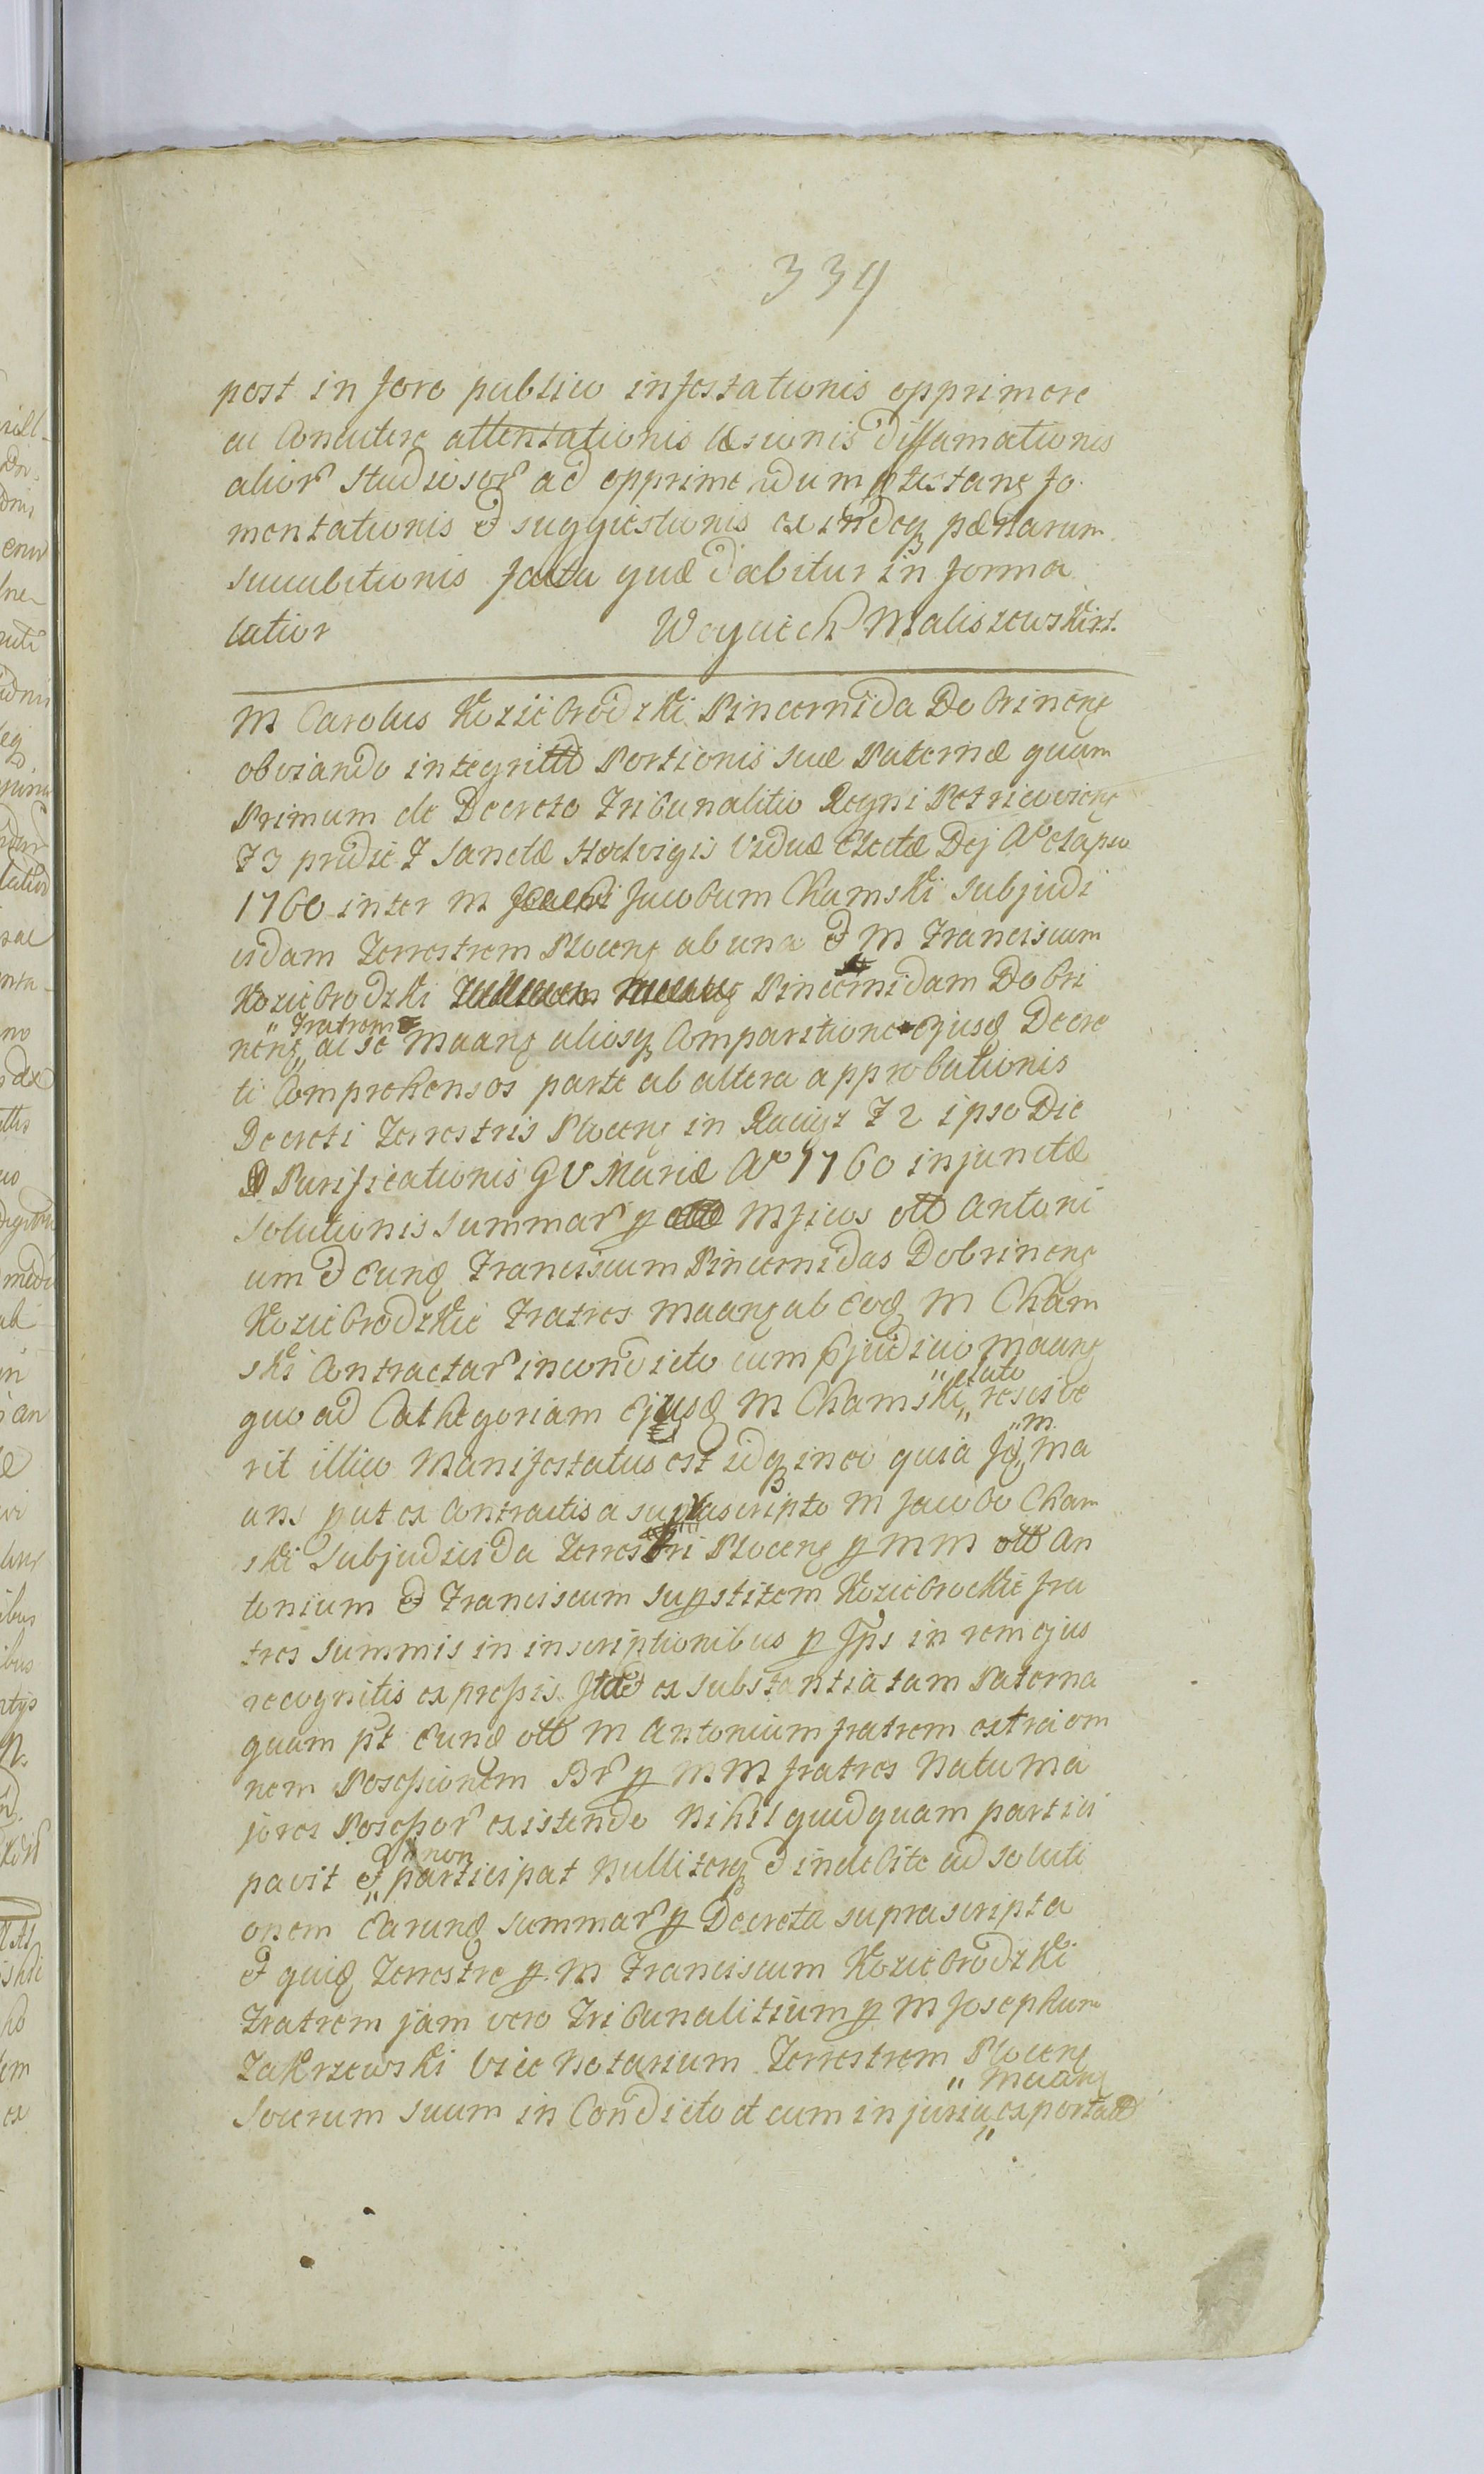 339
post in foro publico infestationis opprimere
ac Concutere attentationis læsionis diffamationis
alior studiosor ad opprimendum ptestang fo
mentationis et suggestionis exindeq pænarum
succubitionis facta quæ dabitur in forma
latior Woyciech Maliszewski
M Carolus Koziebrodzki Pincernida Dobrineng
obviando integritti Portionis suæ Paternæ quam
Primum de Decreto Tribunalitio Regni Petricoviens
F 3 pridie F Sanctæ Hedvigis Viduæ Electæ Dej Ao elapso
1760 inter M Jacobum Chamski Subjudi
cidam Terrestrem Ploceng ab una et M Franciscum
Koziebrodzki Pincernidam Dobri
neng „Fratrem ac se Maang aliosq Comparitione ejusd Decre
ti Comprehensos parte ab altera approbationis
Decreti Terrestris Ploceng in Raciąż F 2 ipso Die
Purificationis G V Mariæ Ao 1760 injunctæ
Solutionis summar p Mficos ott Antoni
um et eund Franciscum Pincernidas Dobrineng
Koziebrodzkie Fratres Maang ab eod M Cham
ski Contractar incondicto cum pjudicio Maang
quo ad Cathegoriam ejusd M Chamski „elato rescive
rit illico Manifestatus est idq in eo quia „m Ma
ans put ex Contractis a suprascripto M Jacobo Cham
ski Subjudicida Terrestri Ploceng p M M ott An
tonium et Franciscum supstitem Koziebrockie fra
tres summis in inscriptionibus p Ips in rem ejus
recognitis expressis ex substantia tam Paterna
quam pt eund ott M Antonium fratrem extreiom
nem Possessionem Br p M M fratres Natu Ma
jores Possessor existendo Nihil quidquam partici
pavit et „non participat Nulliterq et indebite ad soluti
onem earund summar p Decreta suprascripta
et quid Terrestre p M Franciscum Koziebrodzki
Fratrem jam vero Tribunalitium p M Josephum
Zakrzewski Vice Notarium Terrestrem Ploceng
Socerum suum in Condicto et cum injuria „Maang exportatt